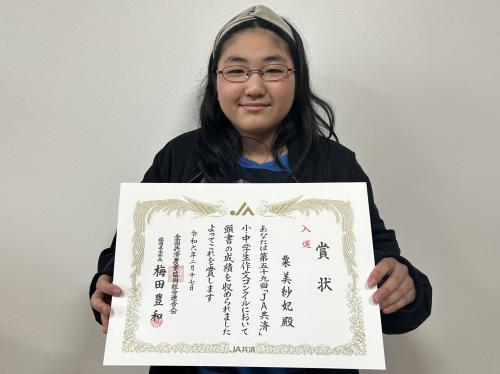 JA
入選
賞状
粟 美紗妃 殿
あなたは第五十九回「JA共済」
小・中学生作文コンクールにおいて
頭書の成績を収められました
よってこれを賞します
令和六年二月十七日
全国共済農業協同組合連合会
梅田豊和
JA共済